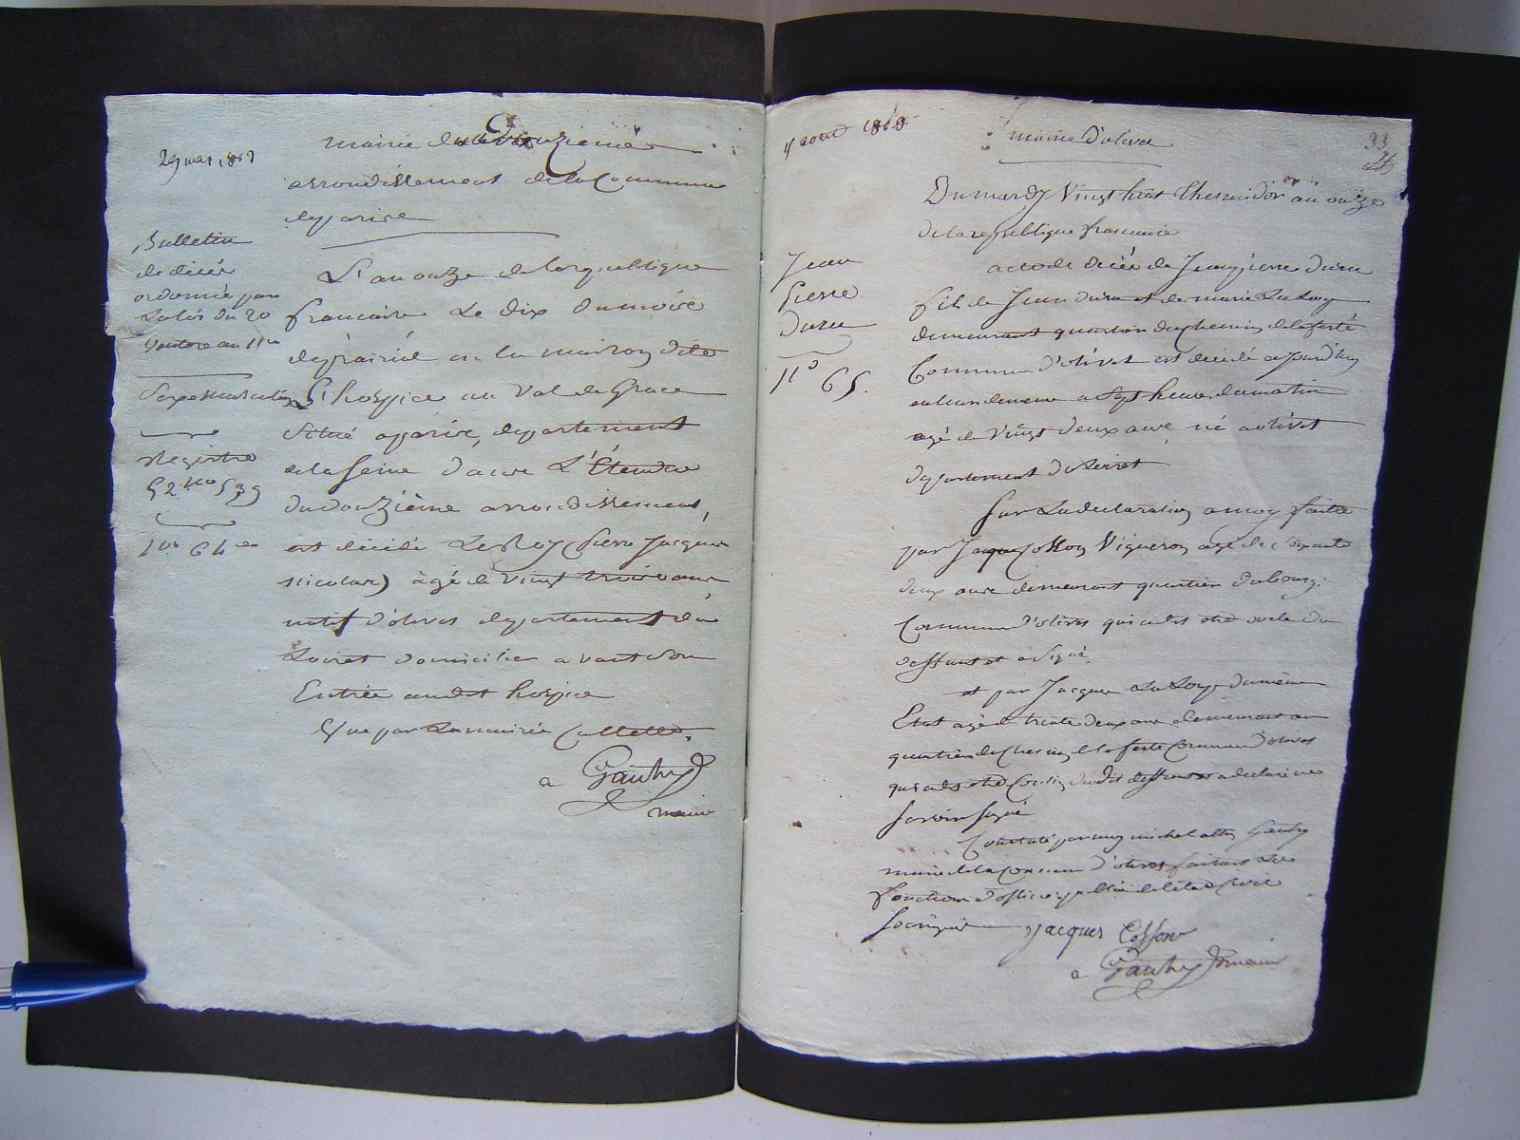 29 mai 1803
mairie du douzieme
arrondissement de la Commune
de parise
Bulletin
de décés
ordonné par
la lois du 20
Ventose an 11
Sexe Masculin
Registre
52 no 539
no 64
L'an onze de la republique
francaise Le dix du mois
de prairial en la maison dite
L'hospice au Val de Grace
Situé a parise, departement
de la Seine dans L'Étendue
du douzième arrondissement,
est décédé LeRoy (Pierre Jacques
nicolas) âgé de vingt trois ans
natif d'olivet departement du
Loiret domicilié avant son
Entrée audit hospice
Vue par la mairie
a Gauthy
maire
août
mairie d'olivet
33
Jean
Pierre
Dureu
no 65.
Du mardy Vingt huit thermidor an onze
de la republique francaise
acte de décés de Jean pierre Dureu
fils de Jean dureu et de marie LeRoy
demeurant quartier du chemin de la ferté
Commune d'olivet est décédé ce jourd'huy
en leur demeure a Sept heures du matin
agé de Vingt deux ans né a olivet
departement du Loiret
Sur la declaration a moy faitte
par Jacque Cosson Vigneron agé de
deux ans demeurant quartier du bourg
Commune d'olivet qui a dit être oncle du
deffunt et a Signé.
et par Jacque LeRoy du même
Etat agé de trente deux ans demeurant au
quartier du Chemin de la ferté Commune d'olivet
qui a dit être Cousin dudit deffunt a déclaré ne
savoir signé
Constaté par moy michel Gauthy
maire de la Commune d'olivet faisant Les
fonctions d'officier public de l'état Civil
Soussigné
Jacques Cosson
a Gauthy maire